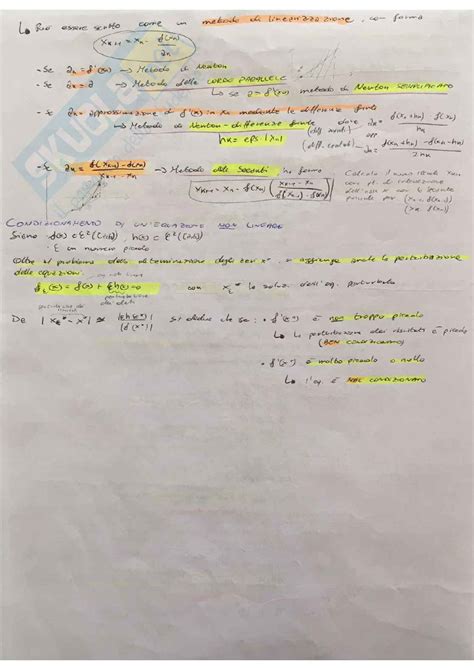 ↳ Può essere scritto come un metodo di linearizzazione, con forma
x_{k+1} = x_k - f(x_k)/a_k
- Se a_k = f'(x_k) → Metodo di Newton
- Se a_k = a → Metodo delle CORDE PARALLELE
↳ se a = f'(x_0) metodo di Newton SEMPLIFICATO
- Se a_k = approssimazione di f'(x) in x_k mediante le differenze finite
↳ Metodo di Newton-differenze finite dove (diff. avanti) a_k = f(x_k + h_k) - f(x_k) / h_k
h_k = eps · |x_k| (diff. centrali) a_k = f(x_k + h_k) - f(x_k - h_k) / 2 h_k
- Se a_k = f(x_{k-1}) - f(x_k) / x_{k-1} - x_k → Metodo delle Secanti, ha forma
x_{k+1} = x_k - f(x_k) (x_{k-1} - x_k / f(x_{k-1}) - f(x_k))
CONDIZIONAMENTO DI UN'EQUAZIONE NON LINEARE
Siano f(x) ∈ C²([a,b]), h(x) ∈ C²([a,b])
ε un numero piccolo
Oltre al problema della determinazione degli zeri x*, si aggiunge anche la perturbazione
delle equazioni:
f_ε(x) = f(x) + εh(x) = 0 con x_ε* la soluz. dell'eq. perturbata
perturbazione
dei dati
Da |x_ε* - x*| ≅ |εh(x*)| / |f'(x*)| si deduce che se: • f'(x*) è non troppo piccolo
↳ la perturbazione dei risultati è piccola
(BEN CONDIZIONATO)
• f'(x*) è molto piccolo o nullo
↳ l'eq. è MAL CONDIZIONATO